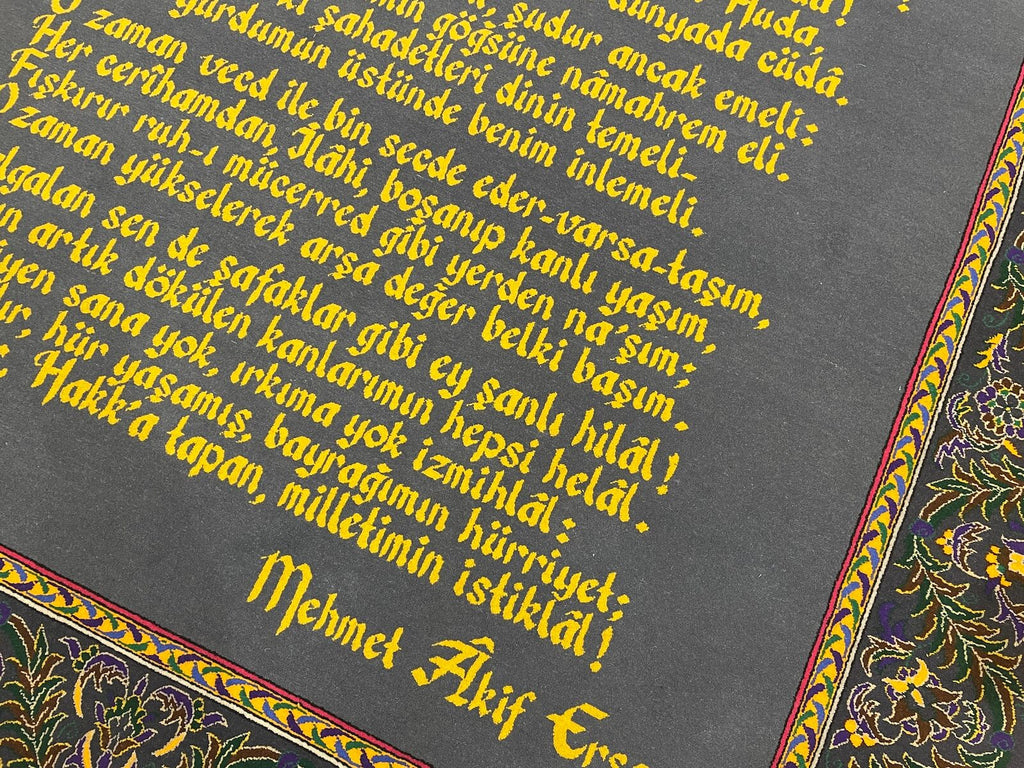 Huda,
dünyada cüdâ.
şudur ancak emeli:
göğsüne nâmahrem eli.
şahadetleri dinin temeli-
yurdumun üstünde benim inlemeli.
O zaman vecd ile bin secde eder-varsa-taşım,
Her cerîhamdan, İlâhi, boşanıp kanlı yaşım,
Fışkırır ruh-ı mücerred gibi yerden na'şım;
O zaman yükselerek arşa değer belki başım.
sen de şafaklar gibi ey şanlı hilâl!
artık dökülen kanlarımın hepsi helâl.
sana yok, ırkıma yok izmihlâl:
hür yaşamış, bayrağımın hürriyet;
Hakk'a tapan, milletimin istiklâl!
Mehmet Âkif